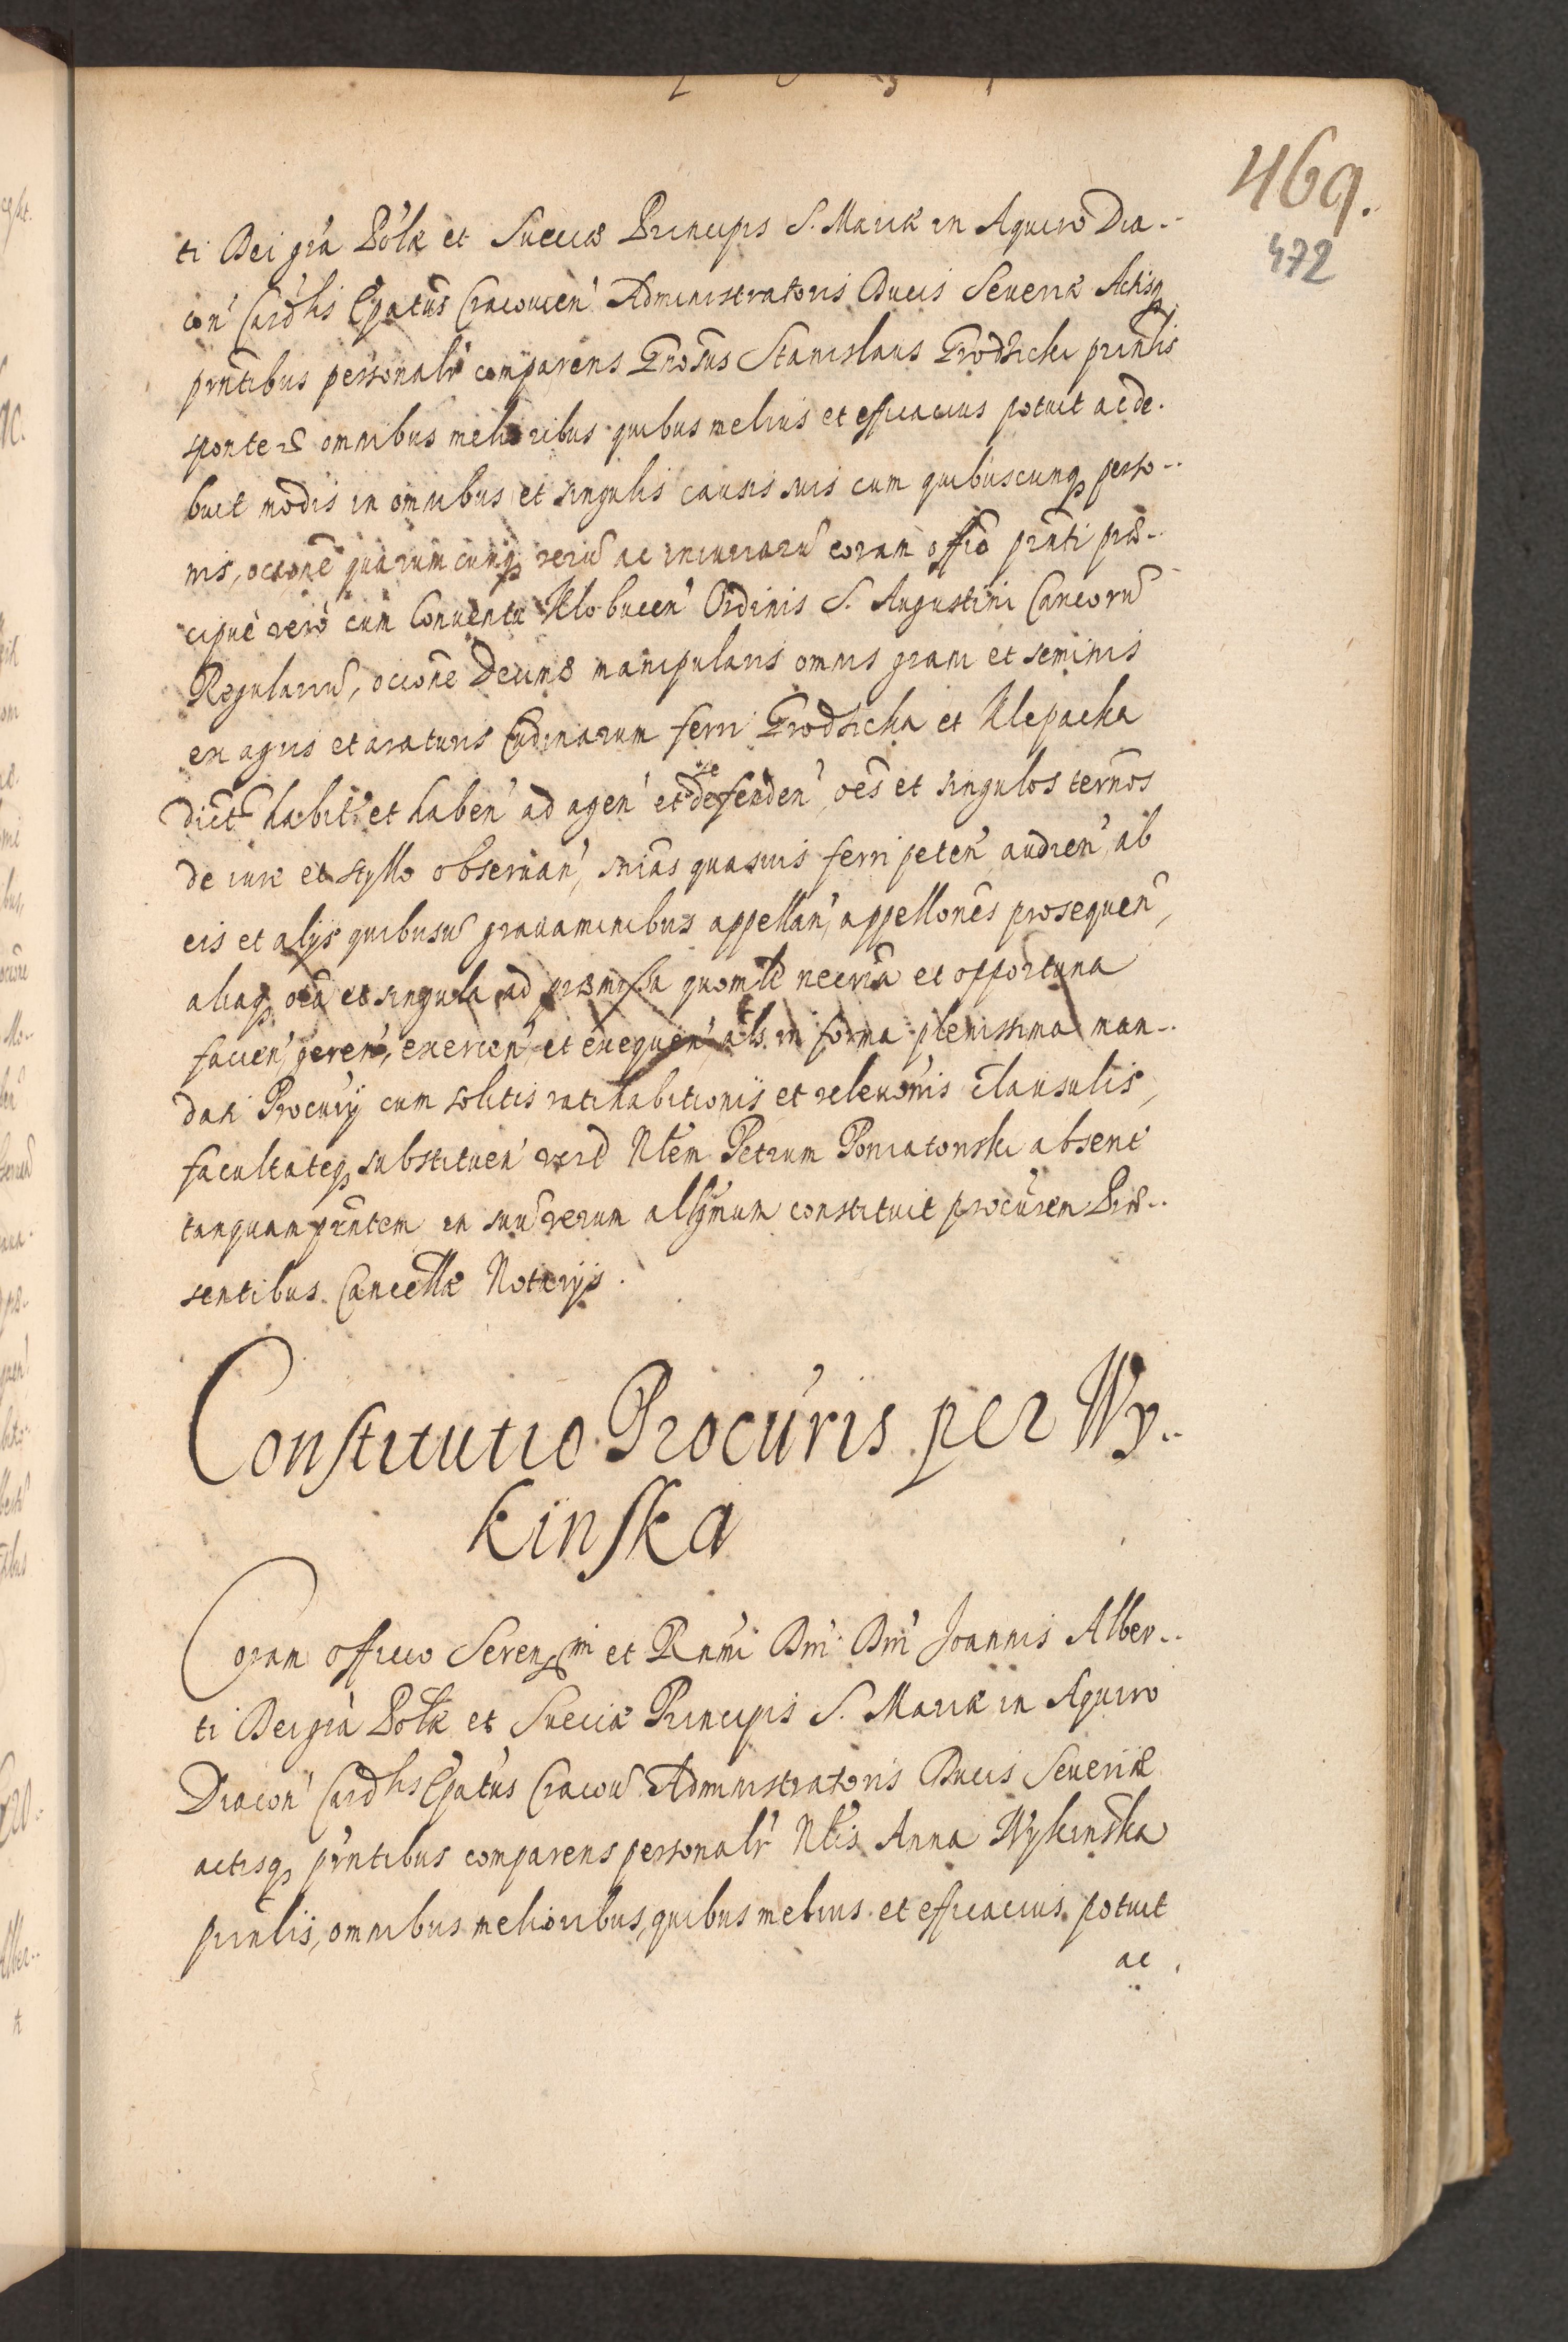 469.
472
ti Dei grã Põlæ et Sueciæ Principis S. Mariæ in Aquiro Dia-
con' Card'lis Ep̃atus Cracovien' Administratoris Ducis Severiæ Actisq
prñtibus personalr' comparens Gñosus Stanislaus Grodzicki prinlis
sponte omnibus melioribus quibus melius et efficacius potuit ac de-
buit modis in omnibus et singulis causis suis cum quibuscunq perso-
nis, occõne quarumcunq rerũ ac iniuriarũ coram offiõ prñti præ-
cipuè verò cum Conventu Klobucen' Ordinis S. Augustini Cancorũ
Regulariũ, occõne Decimæ manipularis omnis grani et seminis
ex agris et araturis ferri Grodzicka et Klepacka
dict' habit' et haben' ad agen' et se defenden' oẽs et singulos terños
de iure et stylo observan', sñias quasvis ferri peten' audien' ab
eis et alijs quibusũ gravaminibus appellan', appellonẽs prosequen',
aliaq oĩa et singula ad præmissa quomlt necriã et opportuna
facien', geren', exercen' et exequen', als in forma plenissima man-
dati Procurij cum solitis ratihabitionis et relevonis clausulis,
facultateq substituen' Nlem Petrum Poniatonski absent'
tanquam prñtem in suũ verum constituit procurem Præ-
sentibus Cancellæ Notarijs.
Constitutio Procuris per Wy-
kinska
Coram officio Serenmi et Rñmi Dñi Dñi Joannis Alber-
ti Dei grã Põlæ et Sueciæ Principis S. Mariæ in Aquiro
Diacon' Cardlis Ep̃atus Cracov Administratoris Ducis Severiæ
actisq prñtibus comparens personalr' Nlis Anna Wykinska
prinlis, omnibus melioribus, quibus melius et efficacius potuit
ac